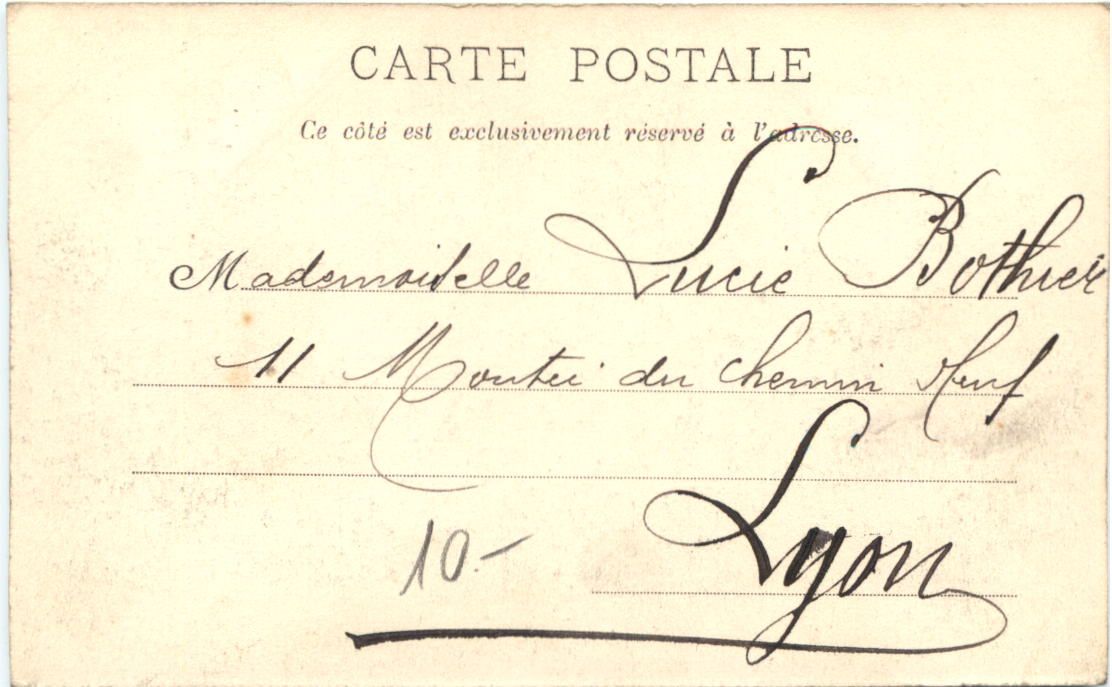 CARTE POSTALE
Ce côté est exclusivement réservé à l'adresse.
Mademoiselle Lucie Bothier
11 Montée du Chemin Neuf
Lyon
10-